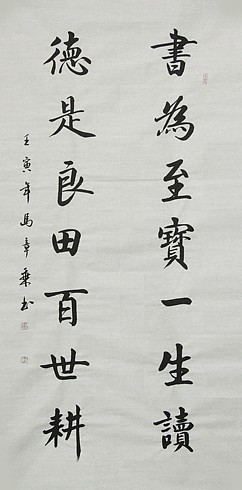 書為至寶一生讀
德是良田百世耕
壬寅年馬章乘书